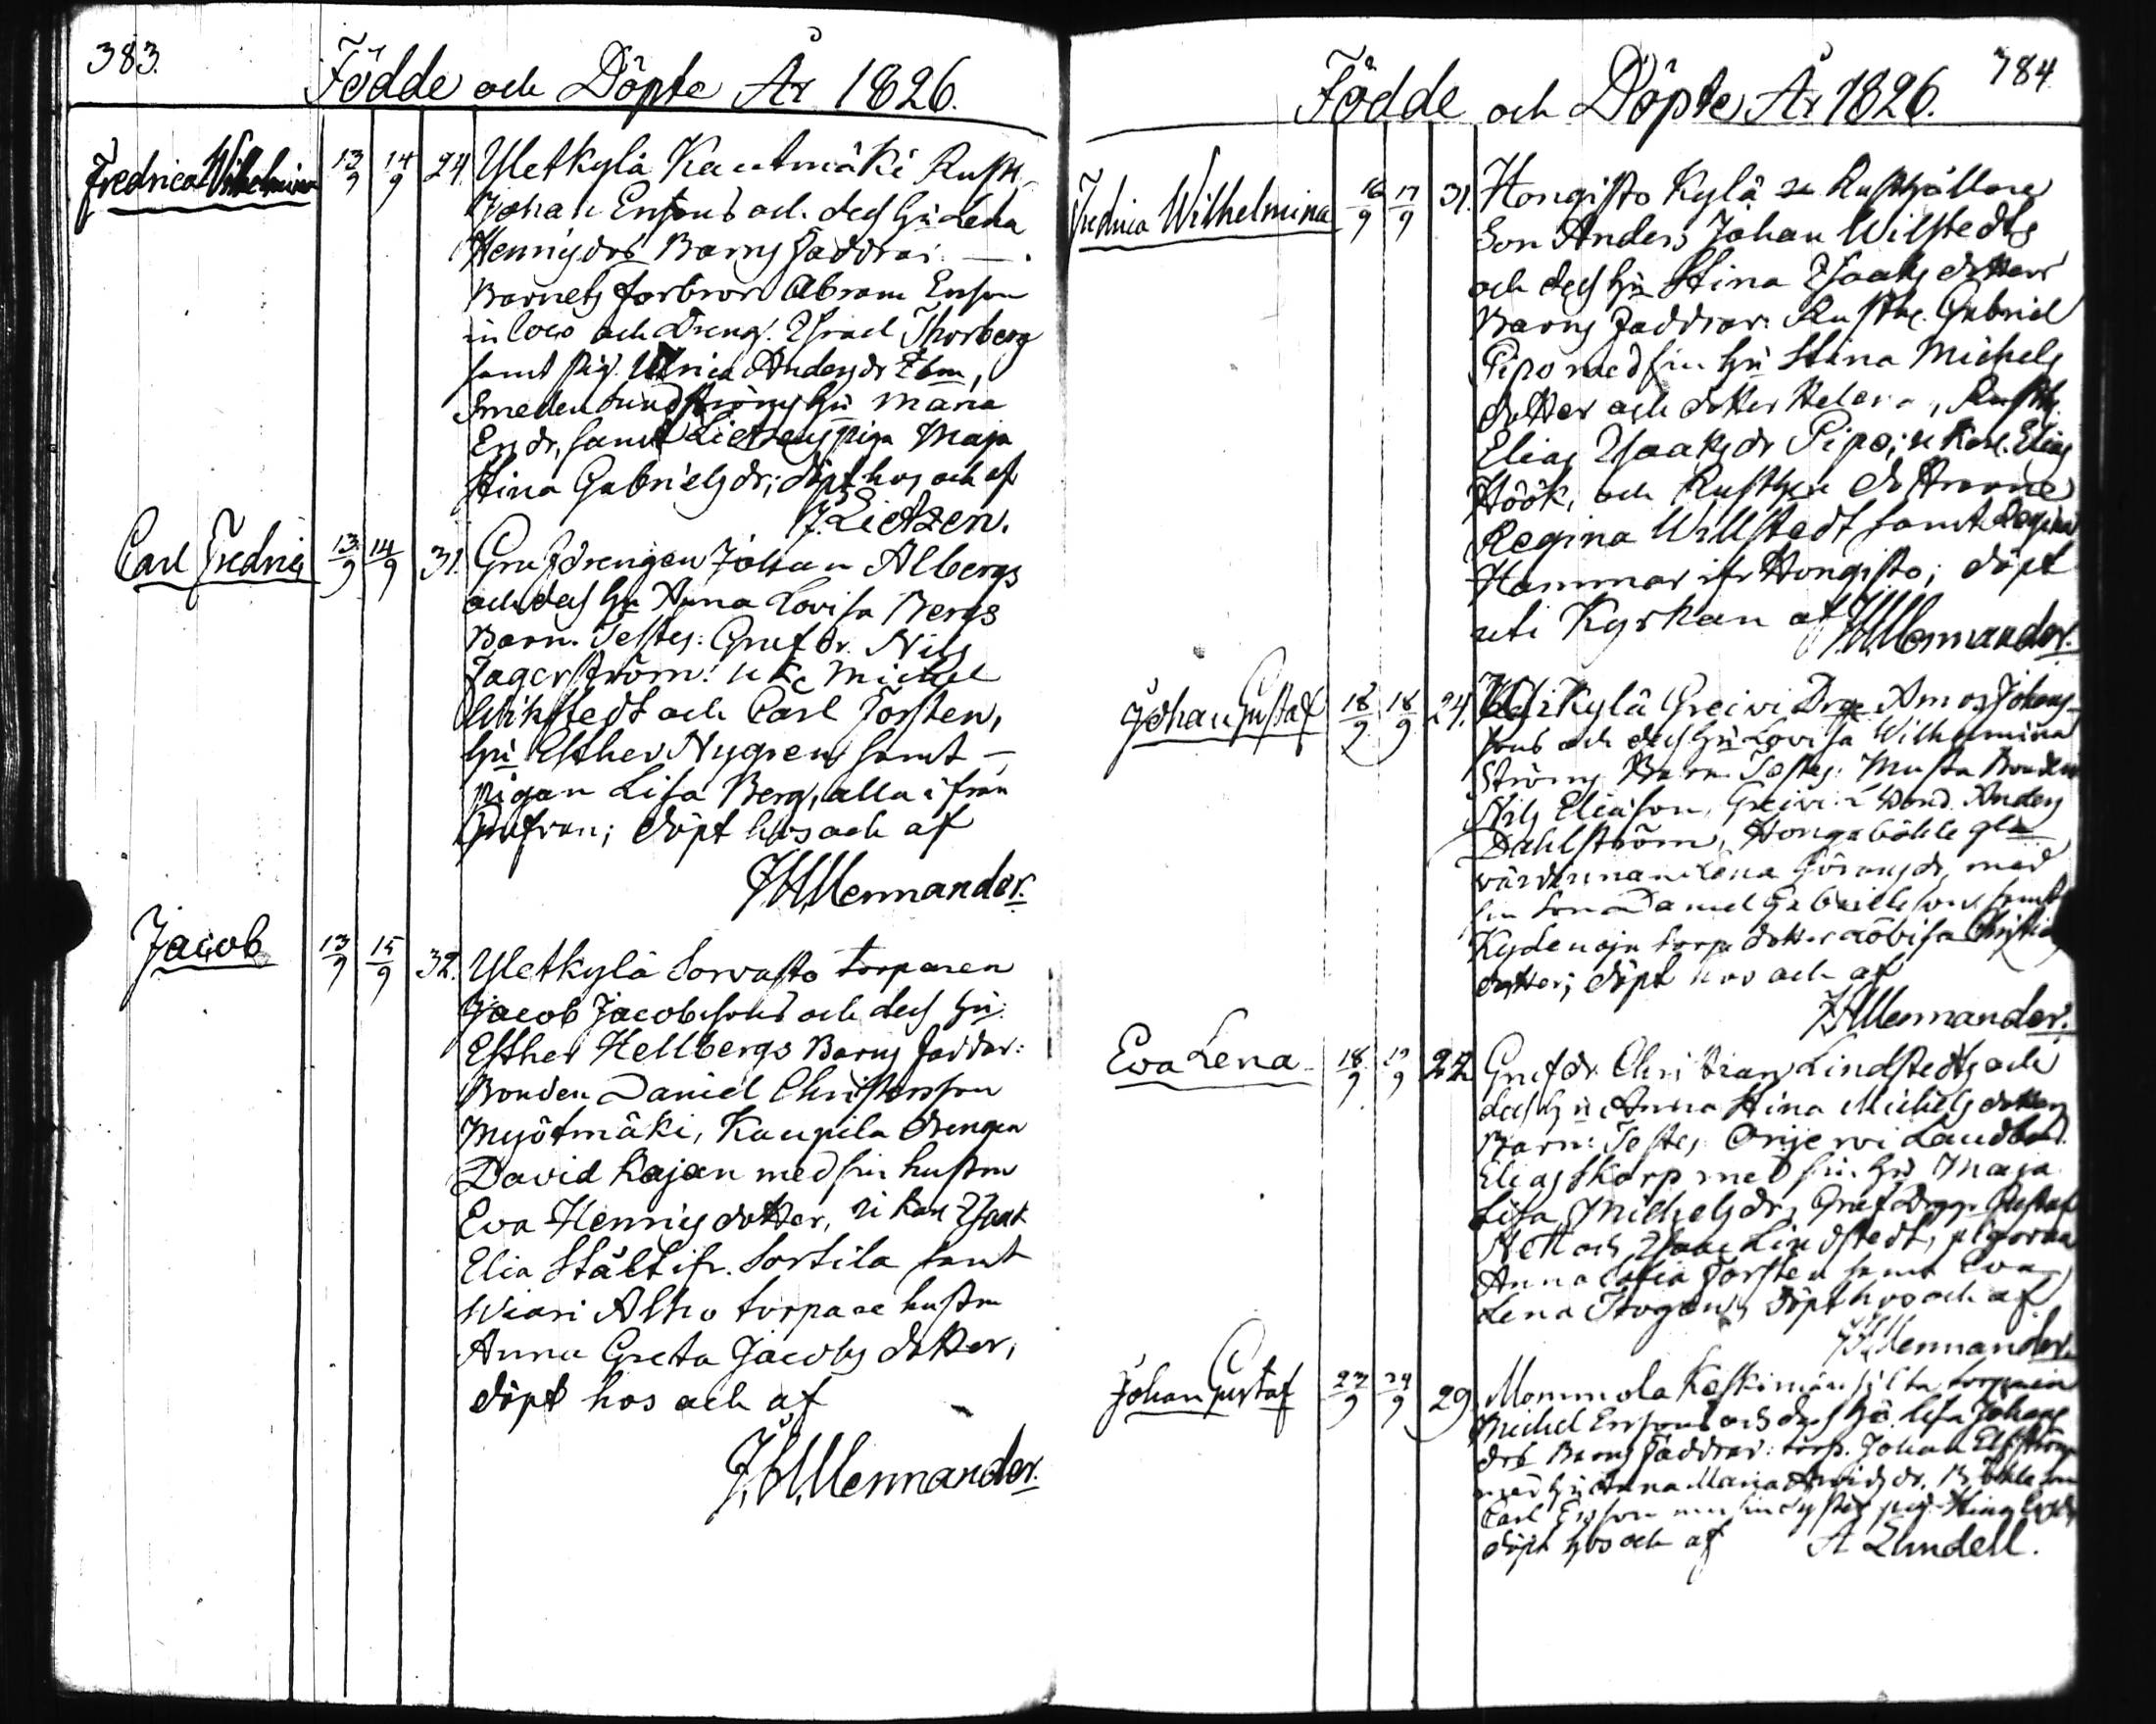 383.
Födde och Döpte År 1826.
Fredrica Wilhelmina 13/9 14/9 24. Yletkylä Kautmäki Rusth.
Johan Ersons och dess hu Lena
Henrigsdrs Barns Faddrar:
Barnets farbror Abram Erson
in loco och dreng. Israel Thorberg
samt pig. Ulrica Andersdr
Smeden Sundströms hu Maria
Ersdr, samt Lietzens piga Maja
Stina Gabrielsdr; döpt hos och af
J. Lietzen.
Carl Fredric 13/9 14/9 31. Grufdrengen Johan Albergs
och dess hu Anna Lovisa Bergs
Barn. Testes: Grufdr. Nils
Jagerström: Michel
Wikstedt och Carl Forsten,
hu Esther Nygren samt
pigan Lisa Berg, alla ifrån
Grufvan; döpt hos och af
J.H. Mennander.
Jacob 13/9 15/9 32. Yletkylä Sorvasto torparen
Jacob Jacobssons och dess hu:
Esther Hellbergs Barns Faddar:
Bonden Daniel Christersson
Myötmäki, Kaupila drengen
David Kajan med sin hustru
Eva Henrigsdotter, Isaak
Elia Stålt ifr. Sortila samt
Wiari Alho torpare hustru
Anna Greta Jacobs dotter,
döpt hos och af
J.H. Mennander.
384.
Födde och Döpte År 1826.
Fredrica Wilhelmina 16/9 17/9 31. Hongisto Kylä Rusthållare
Son Anders Johan Wilstedts
och dess hu Stina Isaaks dotters
Barns Faddrar: Rusth. Gabriel
Pipo med sin hu Stina Michels
dotter och dotter Helena, Rusth.
Elias Isaaksdr Pipo; Elias
Höök, och Rusth. döttrarne
Regina Willstedt samt
Hammar ifr Hongisto; döpt
uti Kyrkan af J.H. Mennander.
Johan Gustaf 18/9 18/9 24. Greivi Amos Johans
sons och dess hu Lovisa Wilhelmina
Ströms Barn. Testes: Musta Bonden
Nils Eliason, Greivi Anders
Dahlström, Hongaböhle
värdinnan Lena Göransdr, med
sin Son Daniel samt
Kydenoja torp. dotter Lovisa
dotter; döpt hos och af
J.H. Mennander.
Eva Lena 18/9 19/9 Grufdr. Christian Lindstedts och
dess hu Anna Stina Michelsdotters
Barn: Testes Orijervi Landbd.
Elias Skarp med sin hu Maja
Lisa Michelsdr, Grufdreng. Gustaf
och Isaac Lindstedt, pigorna
Anna Sofia Forsten samt Eva
Lena döpt hos och af
J.H. Mennander.
Johan Gustaf 23/9 24/9 29. Mommola torparen
Michel Erssons och dess hu. Lisa Johans
drs Barns Faddrar: torp. Johan
med hu Anna Maria
Carl Ersson
döpt hos och af A Lundell.